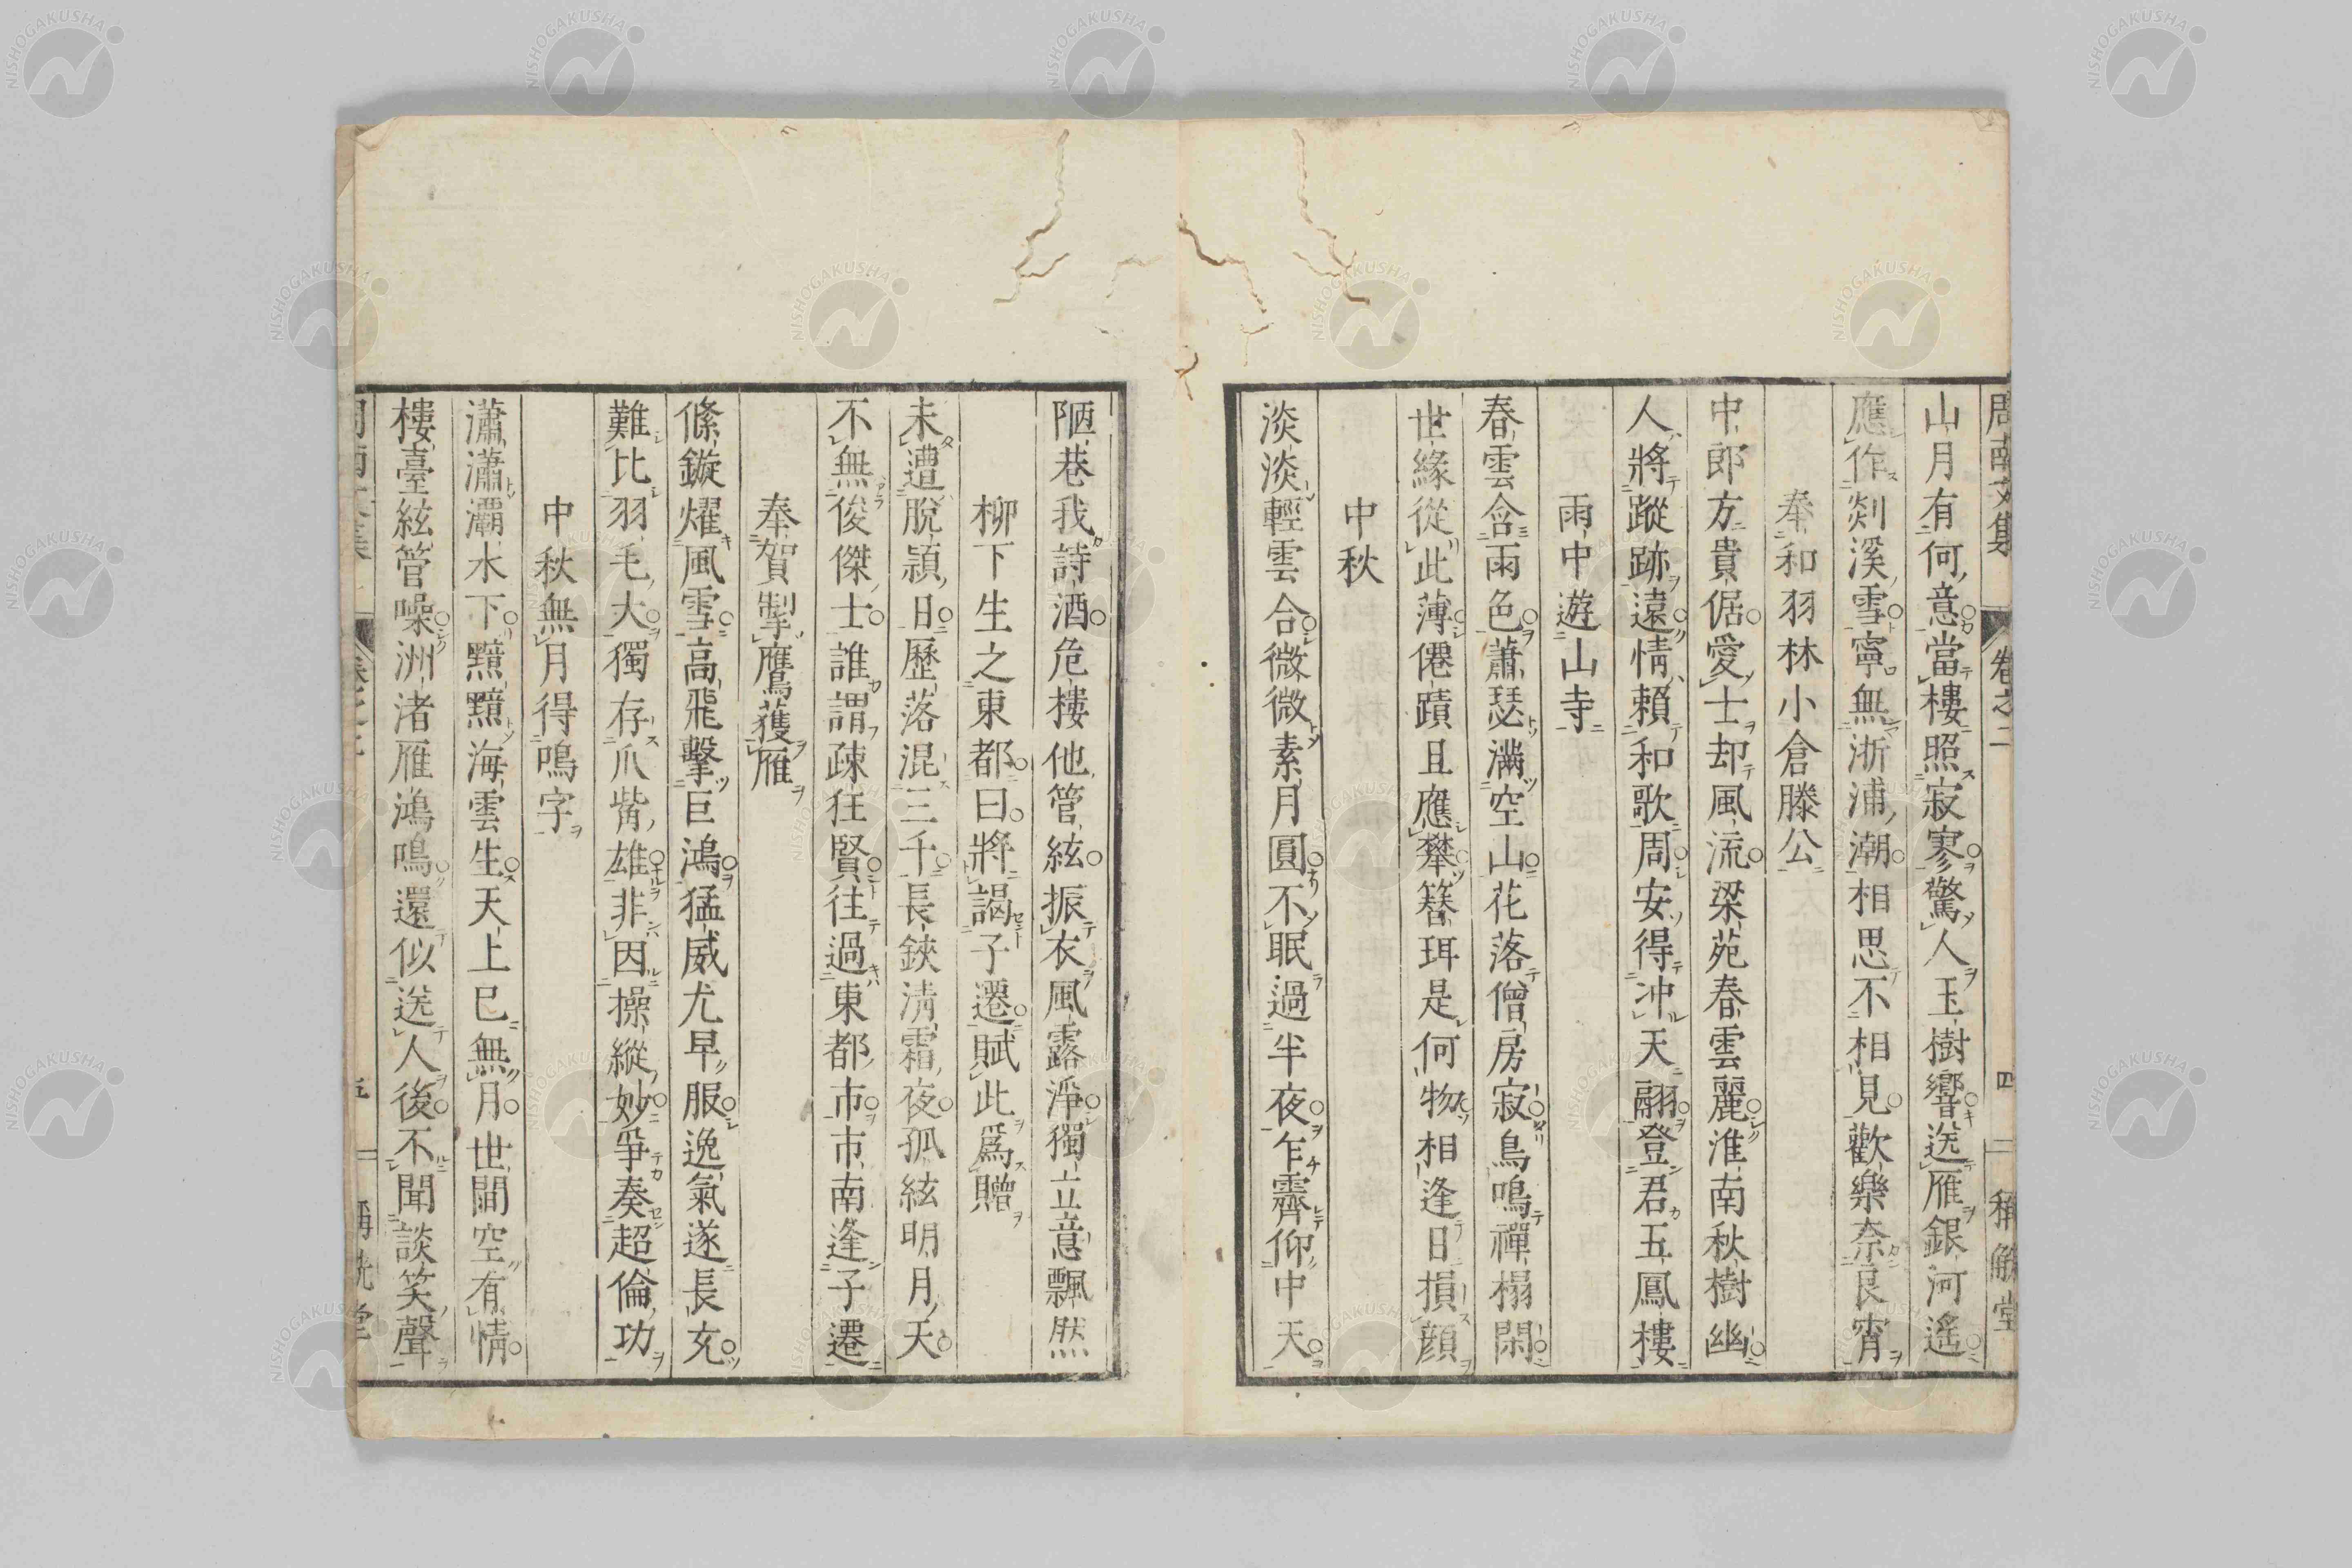 周南文集 卷之二 四 稱觥堂
山月有何意當樓照寂寥驚人玉樹響送雁銀河遙
應作剡溪雪寧無浙浦潮相思不相見歡樂奈良宵
奉和羽林小倉滕公
中郎方貴倨愛士却風流梁苑春雲麗淮南秋樹幽
人將蹤跡遠情賴和歌周安得冲天翮登君五鳳樓
雨中遊山寺
春雲含雨色蕭瑟滿空山花落僧房寂鳥鳴禪榻閑
世緣從此薄僊蹟且應攀簪珥是何物相逢日損顔
中秋
淡淡輕雲合微微素月圓不眠過半夜乍霽仰中天
陋巷我詩酒危樓他管絃振衣風露淨獨立意飄然
柳下生之東都曰將謁子遷賦此爲贈
未遭脫穎日歷落混三千長鋏淸霜夜孤絃明月天
不無俊傑士誰謂疎狂賢往過東都市市南逢子遷
奉賀掣鷹獲雁
絛鏇燿風雪高飛擊巨鴻猛威尤早服逸氣遂長充
難比羽毛大獨存爪觜雄非因操縱妙爭奏超倫功
中秋無月得鳴字
瀟瀟灞水下黯黯海雲生天上已無月世間空有情
樓臺絃管噪洲渚雁鴻鳴還似送人後不聞談笑聲
五
NISHOGAKUSHA